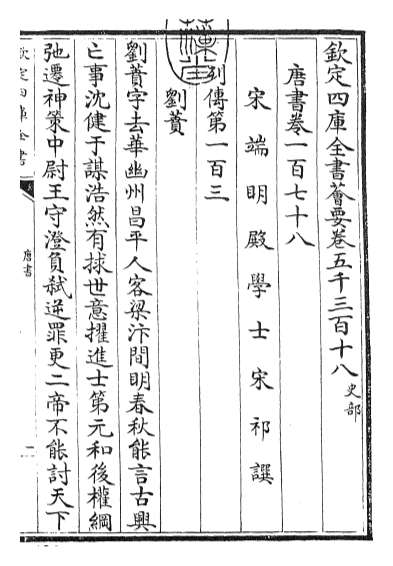 欽定四庫全書薈要卷五千三百十八 史部
唐書卷一百七十八
宋端明殿學士宋祁譔
列傳第一百三
劉蕡
劉蕡字去華幽州昌平人客梁汴間明春秋能言古興
亡事沈健于謀浩然有捄世意擢進士第元和後權綱
弛遷神策中尉王守澄負弑逆罪更二帝不能討天下
欽定四庫全書
唐書
一